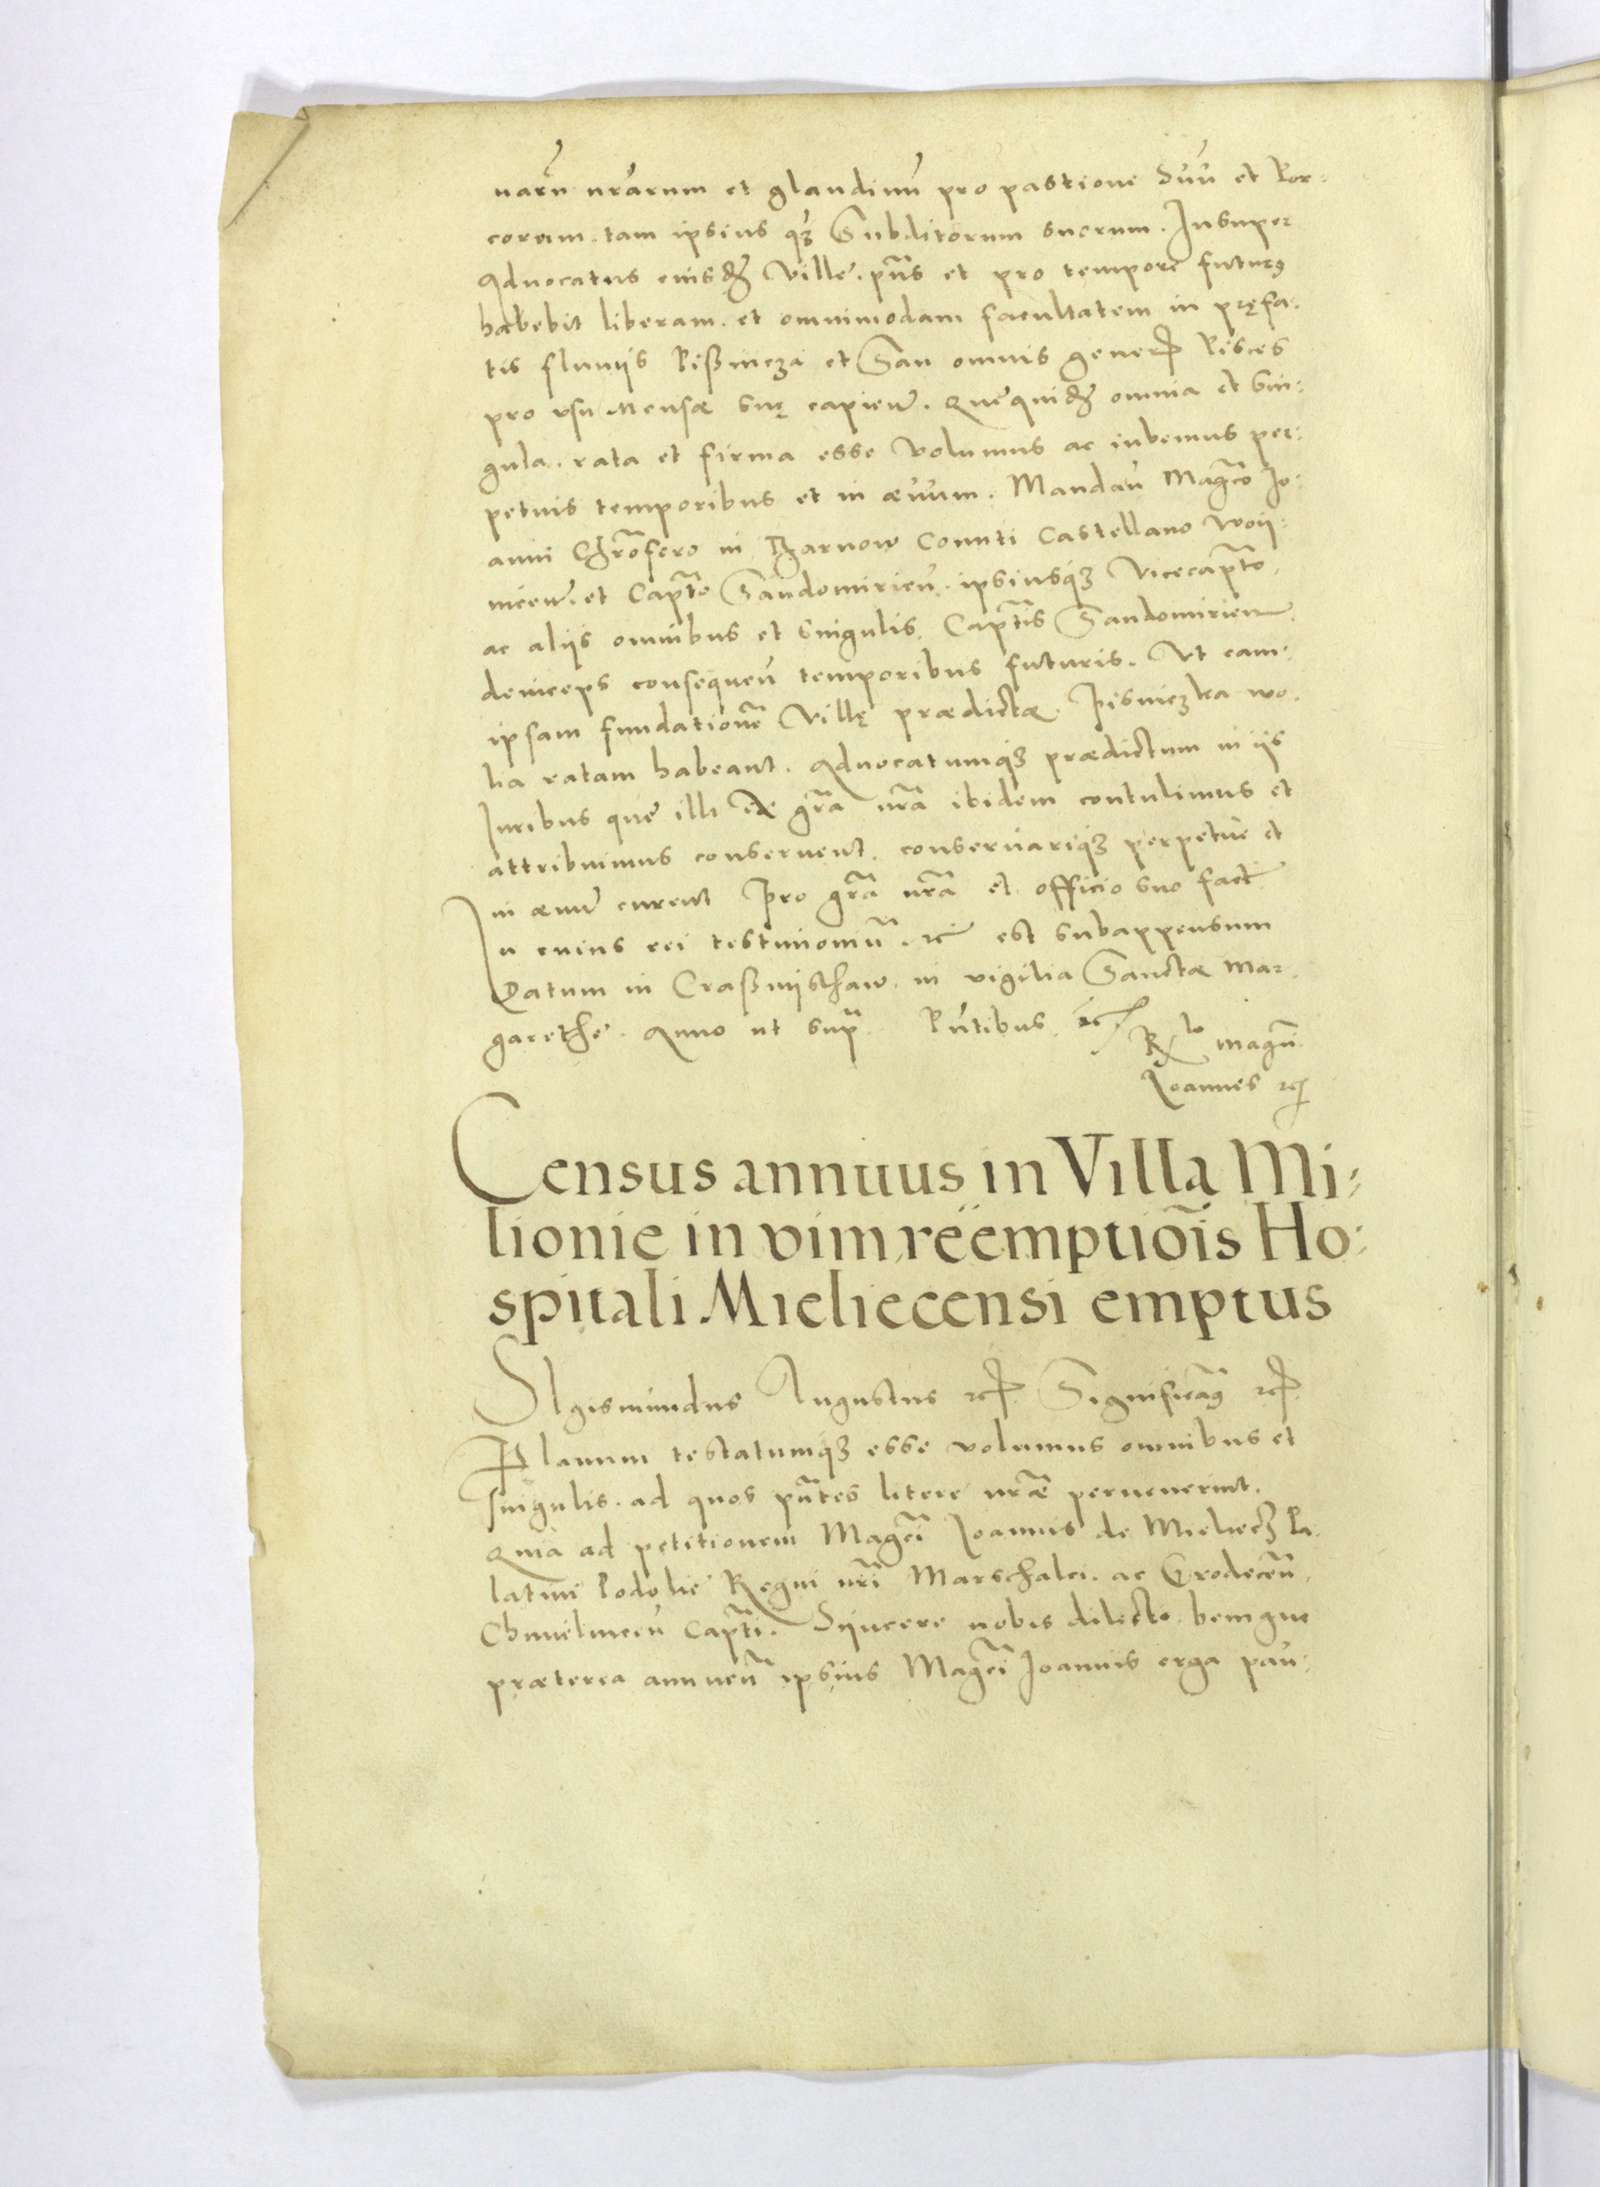 narũ nrãrum et glandinũ pro pastione Suũ et Por:
corum. tam ipsius q̃ꝫ Subditorum suorum. Insuper
Aduocatus eiusdꝫ Villę. pñs et pro tempore futurꝰ
habebit liberam. et omnimodam facultatem in pręfa:
tis fluuijs Pißniczá et San omnis generis Pisces
pro vsu Mensæ suę capieñ. Quęquidꝫ omnia et Sin:
gula. rata et firma esse volumus ac iubemus per:
petuis temporibus et in æuum. Mandañ Magco Jo:
anni Chrõfero in Tharnow Comiti Castellano Woij:
niceñ. et Captõ Sandomirień. ipsiusq̃ꝫ Vicecaptõ
ac alijs omnibus et singulis Captĩs Sandomirień
deinceps consequeñ temporibus futuris. Vt eam:
ipsam fundationẽ Villę prædictæ. Pisniczka wo:
lia ratam habeant. Aduocatumq̃ꝫ prædictum in ijs
Juribus quę illi ex grã nrã ibidem contulimus et
attribuimus conseruent. conseruariq̃ꝫ perpetue et
in æuũ curent Pro grã nrã et officio suo facť
In cuius rei testimoniũ. rc̃ est subappensum
Datum in Craßnijsthaw. in vigilia Sanctæ Mar:
garethę. Anno ut sup̃. Pñtibus rc̃
Rlo magcĩ
Joannes rc̃
Census annuus in Villa Mi:
lionie in vim reemptiõis Ho:
spitali Mieliecensi emptus
SIgismundus Augustus rc̃. Significãꝰ rc̃.
Planum testatumq̃ꝫ esse volumus omnibus et
singulis. ad quos pñtes literę nrãe peruenerint.
Quia ad petitionem Magcĩ Joannis de Mieliecz Pa:
latini Podolię Regni nrĩ Marschalci. ac Grodeceñ.
Chmielniceñ Captĩ. Sijncere nobis dilecto. benigne
præterea annueñ ipsius Magcĩ Joannis erga pau: